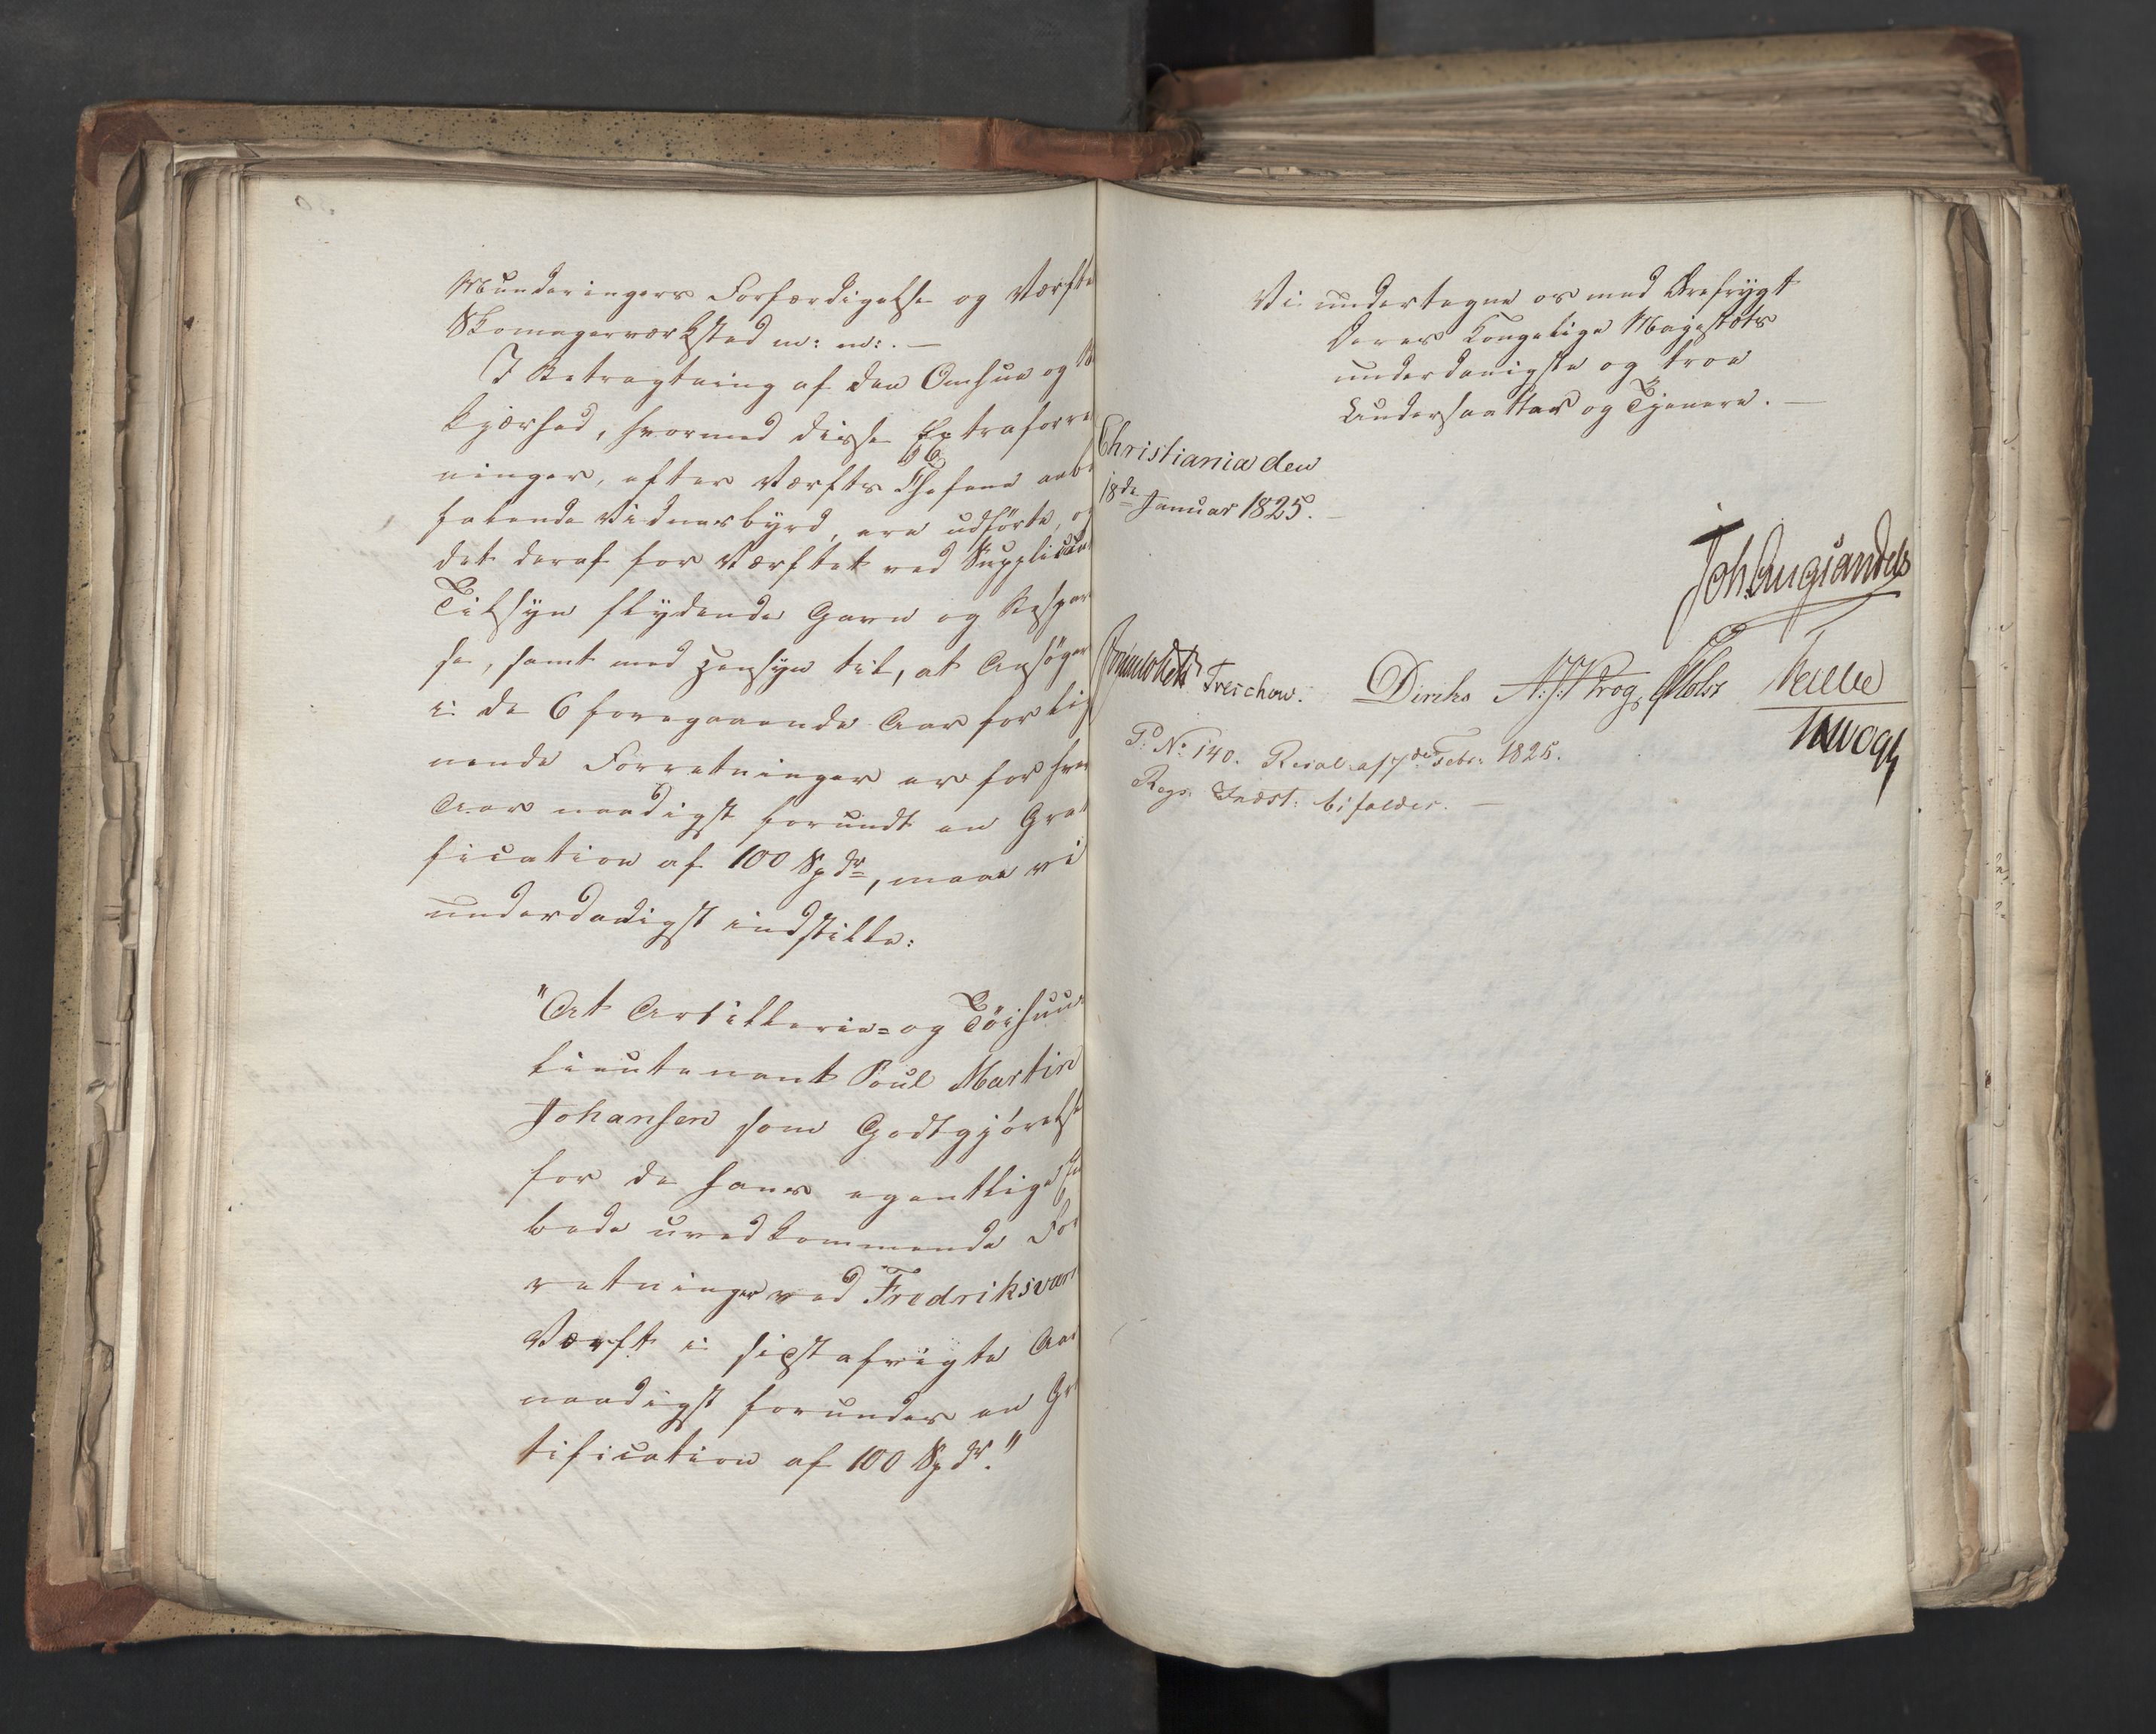 Munderingers Forfærdigelse og Værfte
Skomagerværksted m: m:. —
I Betragtning af den Omhue og
kjærhed, hvormed disse Extraforre
ninger, efter Værfts Chefens anbe
falende Vidnesbyrd, ere udførte, og
det deraf for Værftet ved Supplicant
Tilsyn flydende Gavn og Bespar
se, samt med Hensyn til, at Ansøger
i de 6 foregaaende Aar for lig
nende Forretninger er for hver
Aar naadigst forundt en Grat
fication af 100 Spdr, maae vi
underdanigst indstille:
"At Artillerie- og Tøihuus
Lieutenant Poul Martin
Johansen som Godtgjørelse
for de hans egentlige Em
bede uvedkommende For
retninger ved Fredriksværn
Værft i sidstafvigte Aar
naadigst forundes en Gra
tification af 100 Spdr."
Vi undertegne os med Ærefrygt
Deres Kongelige Majestæts
underdanigste og troe
Undersaatter og Tjenere. —
Christiania den
18de Januar 1825. —
Joh Aug Sandels
Treschow. Diriks N: J: Krog Holst
P: No 140. Resol. af 7de Febr: 1825.
Regs Indst: bifaldes. —